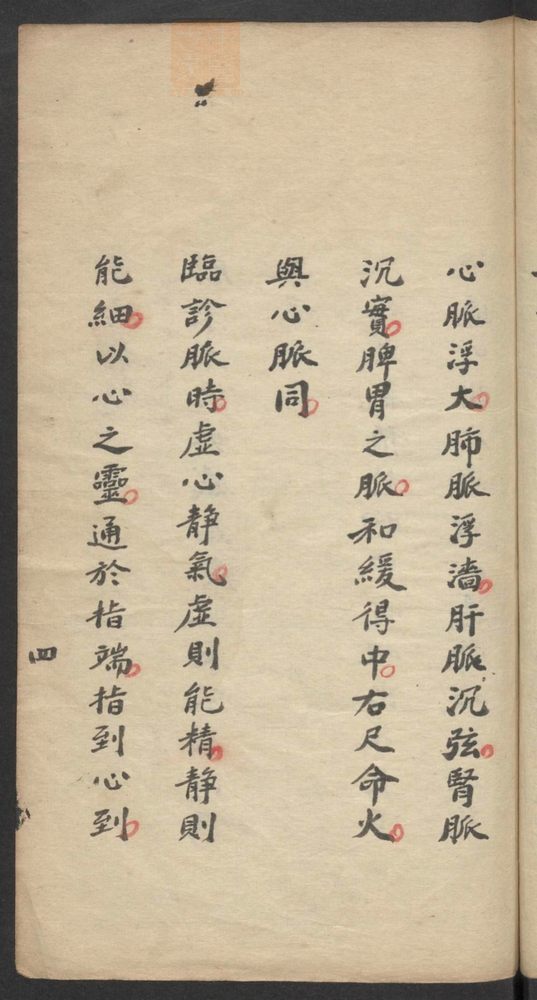 心脈浮大。肺脈浮濇。肝脈沉弦。腎脈
沉實。脾胃之脈。和緩得中。右尺命火。
與心脈同。
臨診脈時。虛心靜氣。虛則能精。靜則
能細。以心之靈。通於指端。指到心到。
四